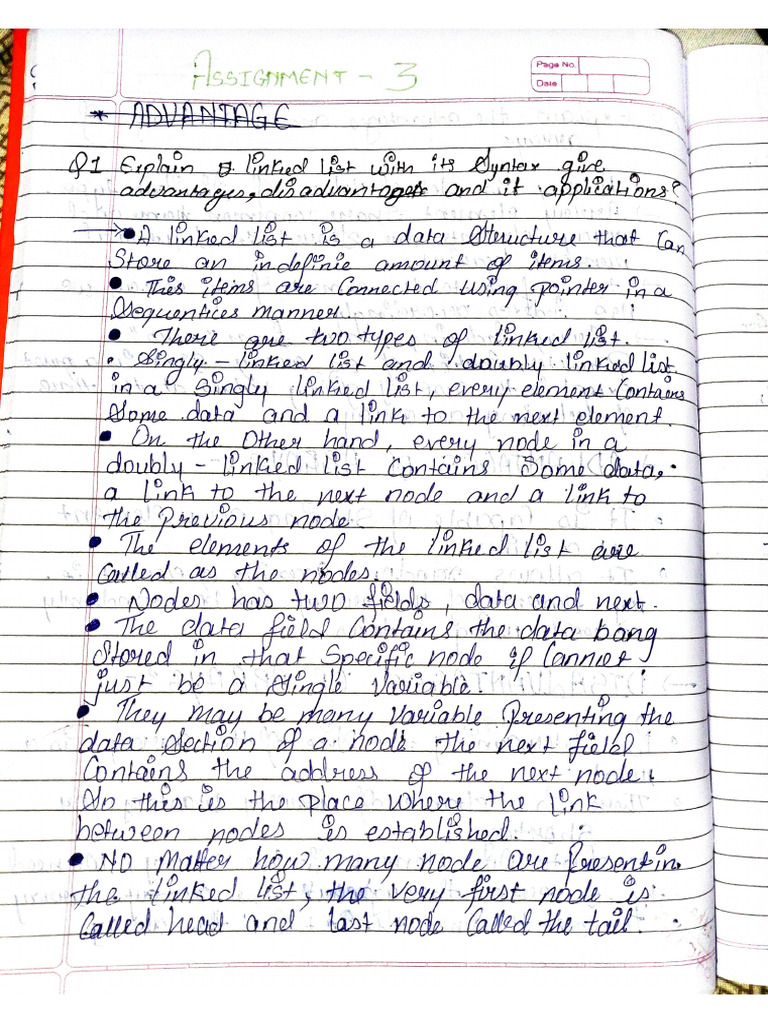 ASSIGNMENT - 3
Page No.
Date
* ADVANTAGE
Q1 Explain linked list with its Syntax give
advantages, disadvantages and it applications?
→ • A linked list is a data Structure that Can
Store an indefinie amount of items.
• This items are Connected using pointer in a
Sequentices manner.
• There are two types of linked list.
• Singly - linked list and doubly linked list
in a Singly linked list, every element Contains
Some data and a link to the next element.
• On the Other hand, every node in a
doubly - linked list Contains Some data,
a link to the next node and a link to
the Previous node
• The elements of the linked list are
Called as the nodes.
• Nodes has two fields, data and next.
• The data field Contains the data bang
Stored in that Specific node if Cannot
just be a Single Variable.
• They may be many Variable Presenting the
data Section of a node The next field
Contains the address of the next node.
So this is the place where the link
between nodes is established.
• NO Matter how many node are Present in
the linked list, the very first node is
Called head and last node Called the tail.